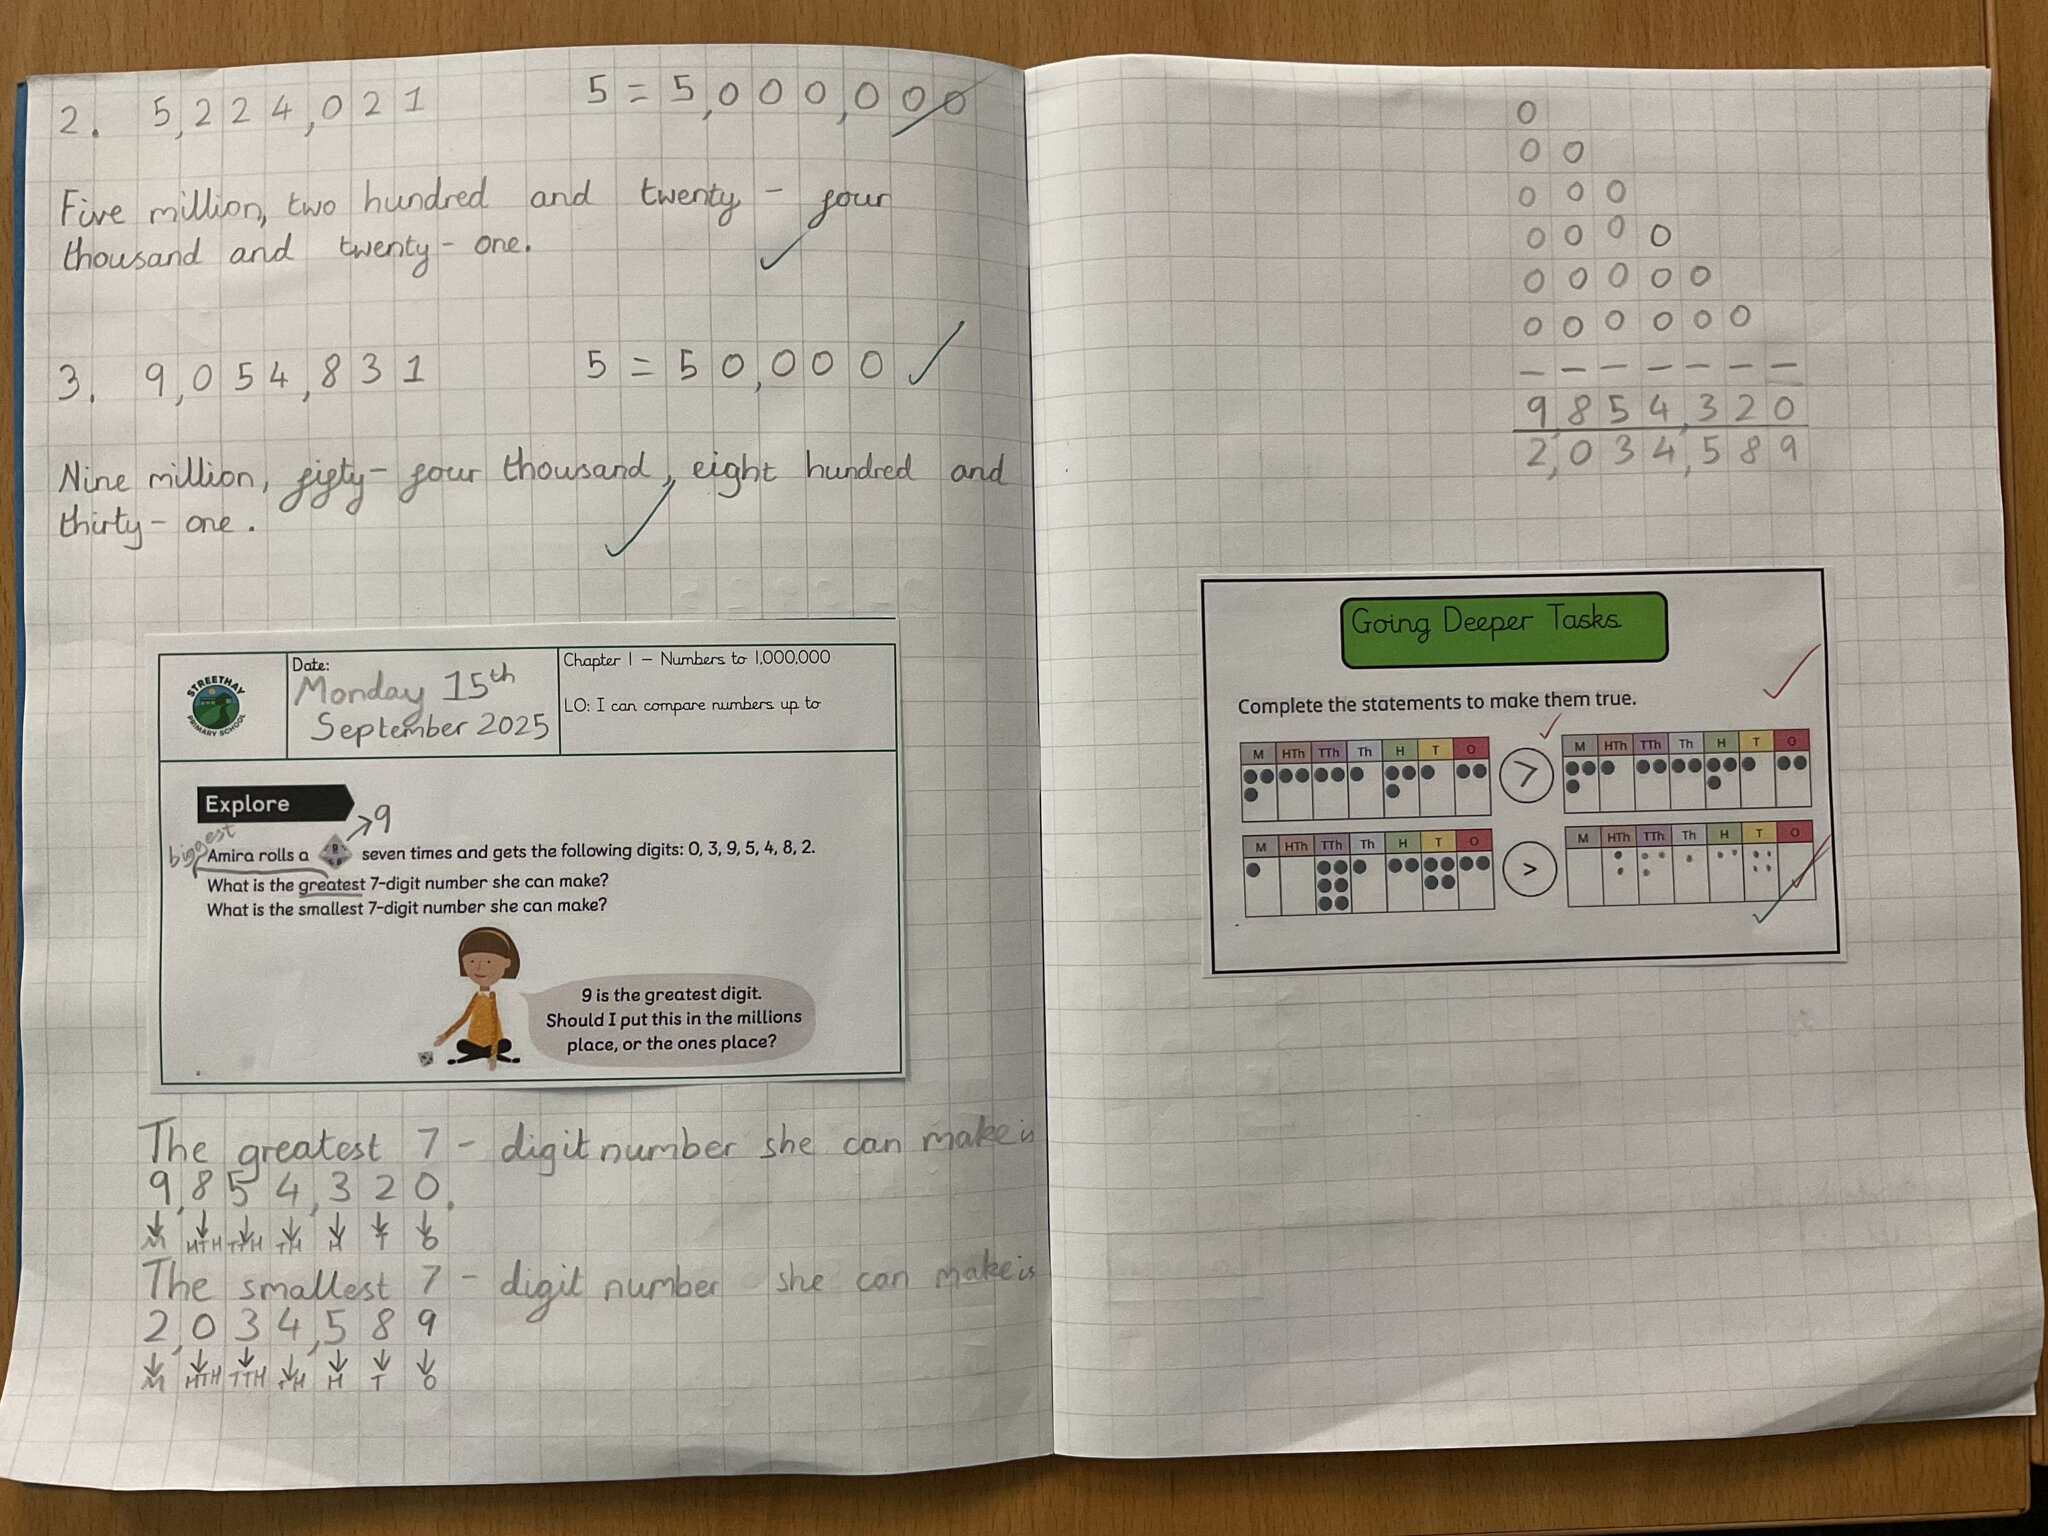 2. 5,224,021 5 = 5,000,000
Five million, two hundred and twenty - four
thousand and twenty - one.
3. 9,054,831 5 = 50,000
Nine million, fifty - four thousand, eight hundred and
thirty - one.
STREETHAY
PRIMARY SCHOOL
Date:
Monday 15th
September 2025
Chapter 1 – Numbers to 1,000,000
LO: I can compare numbers up to
Explore
9
biggest
Amira rolls a seven times and gets the following digits: 0, 3, 9, 5, 4, 8, 2.
What is the greatest 7-digit number she can make?
What is the smallest 7-digit number she can make?
9 is the greatest digit.
Should I put this in the millions
place, or the ones place?
The greatest 7 - digit number she can make is
9,854,320.
M HTH TTH TH H T O
The smallest 7 - digit number she can make is
2,034,589
M HTH TTH TH H T O
0
0 0
0 0 0
0 0 0 0
0 0 0 0 0
0 0 0 0 0 0
_ _ _ _ _ _ _
9,854,320
2,034,589
Going Deeper Tasks
Complete the statements to make them true.
M HTh TTh Th H T O > M HTh TTh Th H T O
M HTh TTh Th H T O > M HTh TTh Th H T O